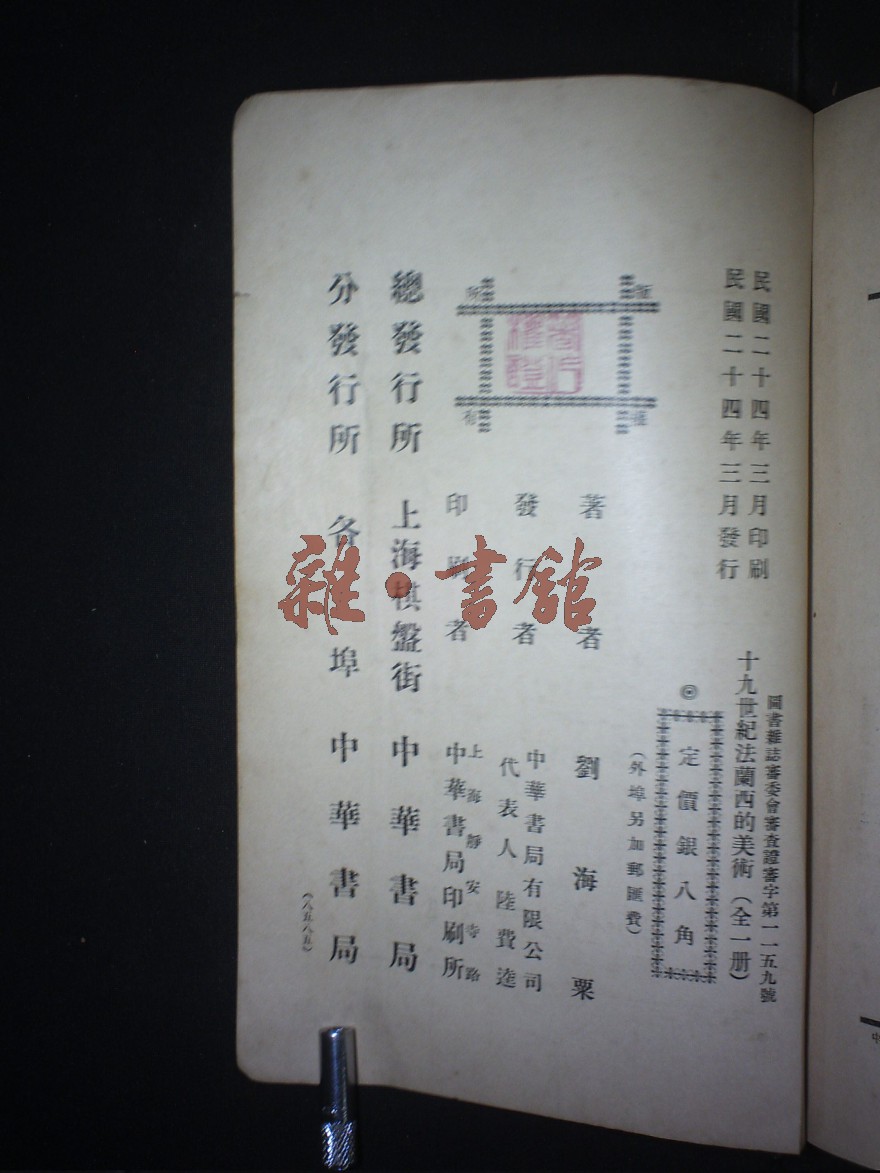 民國二十四年三月印刷
民國二十四年三月發行
圖書雜誌審委會審查證審字第一一五九號
十九世紀法蘭西的美術（全一册）
◎
定價銀八角
（外埠另加郵匯費）
版權
所有
著者 劉海粟
發行者 中華書局有限公司
代表人陸費逵
印刷者 上海靜安寺路
中華書局印刷所
總發行所 上海棋盤街 中華書局
分發行所 各埠 中華書局
（八五八五）
雜·書館